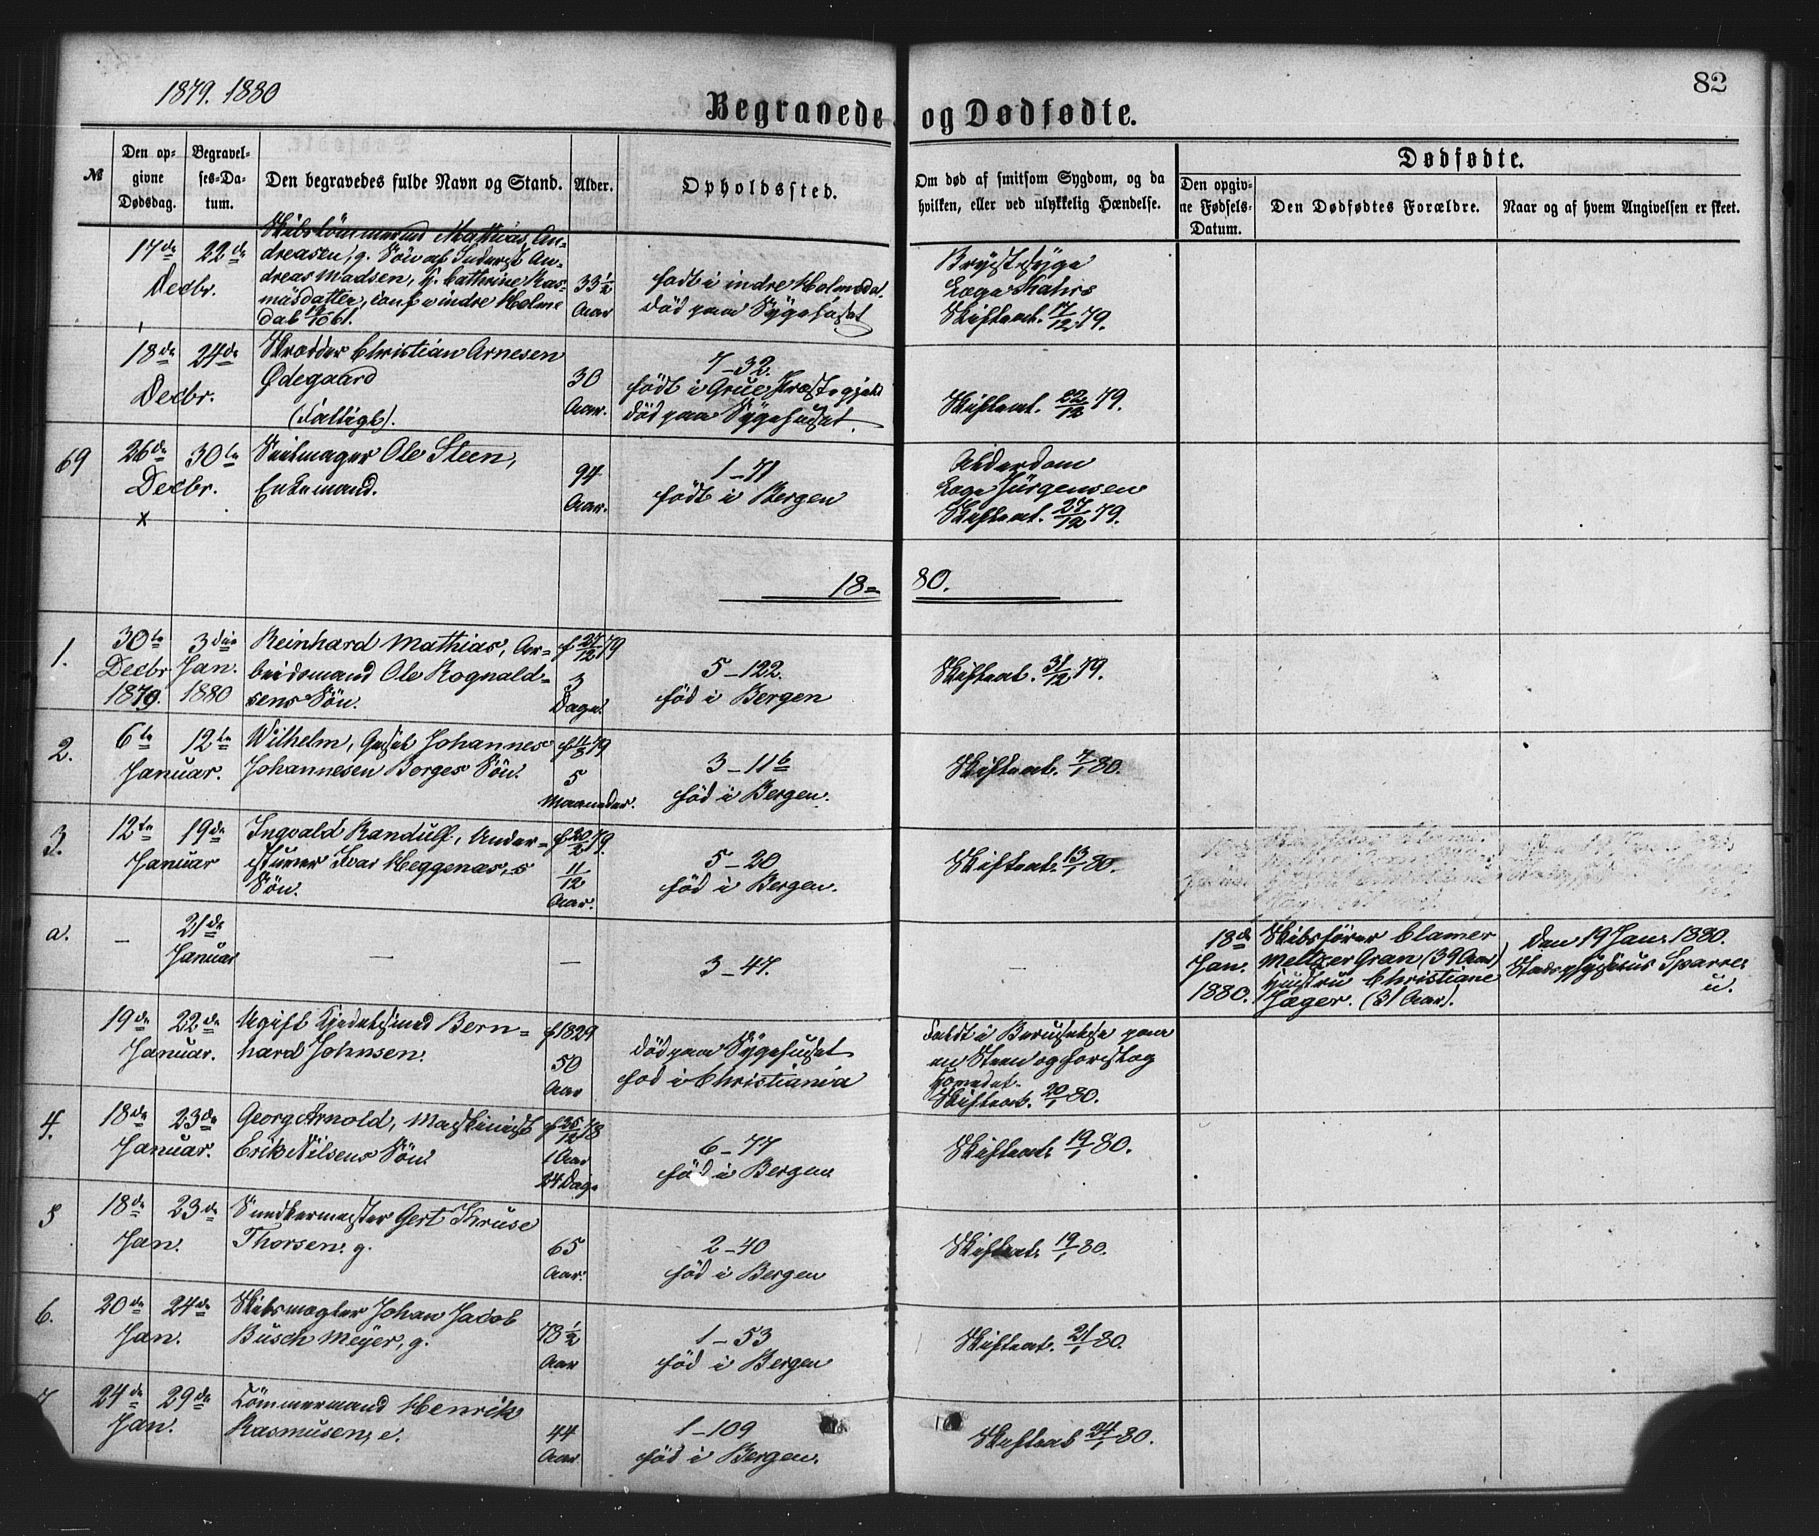 1879. 1880
82
Begravede og Dødfødte.
№
Den opgivne Dødsdag.
Begravelses-Datum.
Den begravedes fulde Navn og Stand.
Alder.
Opholdssted.
Om død af smitsom Sygdom, og da hvilken, eller ved ulykkelig Hændelse.
Dødfødte.
Den opgivne Fødsels-Datum.
Den Dødfødtes Forældre.
Naar og af hvem Angivelsen er skeet.
17de Decbr.
22de
Skibstömmermd Mathias An-
dreasen, g. Sön af Inderst An-
dreas Madsen, & Cathrine Ras-
musdatter, conf. i indre Holme
dal
33½ Aar
födt i indre Holmedal
död paa Sygehuset
Brystsyge
Læge Kahrs
Skifteat. 17/12 79.
18de Decbr.
24de
Skrædder Christian Arnesen
Ødegaard
(Fattigl).
30 Aar.
7-32.
födt i Grue Præstegjeld
död paa Sygehuset.
Skifteat. 22/12 79.
69
26de Decbr.
x
30te
Seilmager Ole Steen,
Enkemand.
94 Aar.
1-71
födt i Bergen
Alderdom
Læge Jürgensen
Skifteat. 27/12 79.
18= 80.
1.
30te Decbr 1879.
3die Jan. 1880
Reinhard Mathias, Ar-
beidsmand Ole Rognald-
sens Sön.
f 27/12 79
3 Dage.
5-122.
föd i Bergen
Skifteat. 31/12 79.
2.
6te Januar.
12te
Wilhelm, Johannes
Johannesen Berges Sön.
5 Maaneder.
3-11b
föd i Bergen.
Skifteat. 7/1 80.
3.
12te Januar
19de
Ingvald Randulf, Under-
styrer Ivar Heggenæs,s
Sön.
f 20/2 79.
11/12 Aar.
5-20
föd i Bergen.
Skifteat. 13/1 80.
a.
—
21de Januar
—
3-47.
—
18de Jan. 1880.
Skibsförer Clamer
Meltzer Gran (39 Aar)
Hustru Christiane
Jæger. (31 Aar).
Den 19 Jan. 1880.
Stadsphysicus Sparre.
u.
19de Januar.
22de
Ugift Kjedelsmed Bern-
hard Johnsen.
f 1829
50 Aar
död paa Sygehuset
föd i Christiania
Faldt i Beruselse paa
en Steen og forslog
Hovedet.
Skifteat. 20/1 80.
4.
18de Januar.
23de
Georg Arnold, Maskinist
Erik Nilsens Sön.
f 25/12 78
1 Aar
24 Dage
6-77
föd i Bergen
Skifteat. 19/1 80.
5
18de Jan.
23de
Snedkermester Gert Kruse
Thorsen. g.
65 Aar.
2-40
föd i Bergen
Skifteat. 19/1 80.
6.
20de Jan.
24de
Skibsmægler Johan Jacob
Busch Meyer, g.
78½ Aar
1-53
föd i Bergen
Skifteat. 21/1 80.
7
24de Jan.
29de
Tömmermand Henrik
Rasmusen, e.
44 Aar
1-109
föd i Bergen.
Skifteat 24/1 80.